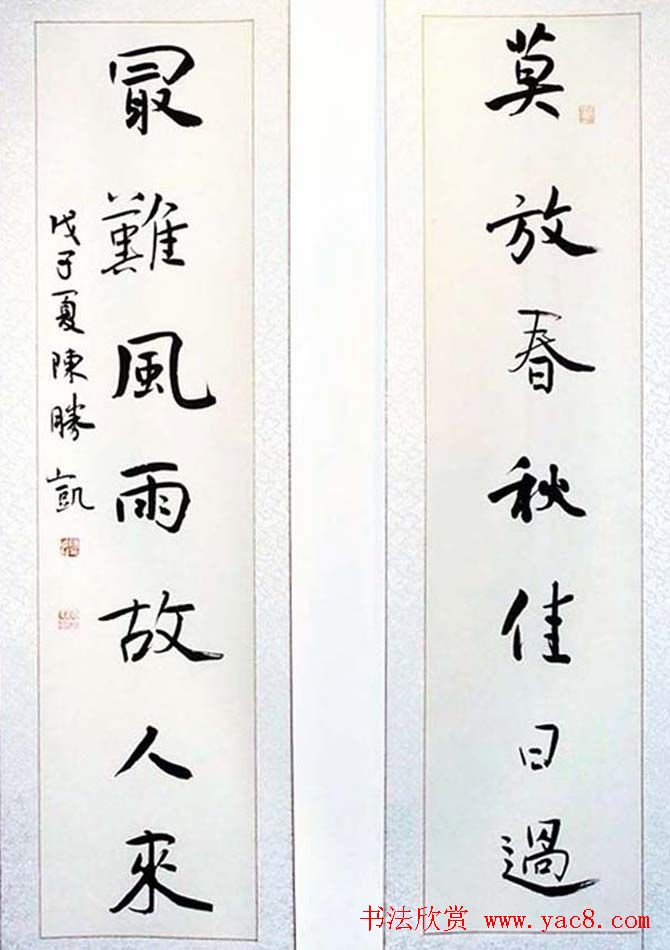 莫放春秋佳日過
冣難風雨故人來
戊子夏陳勝凱
书法欣赏 www.yac8.com